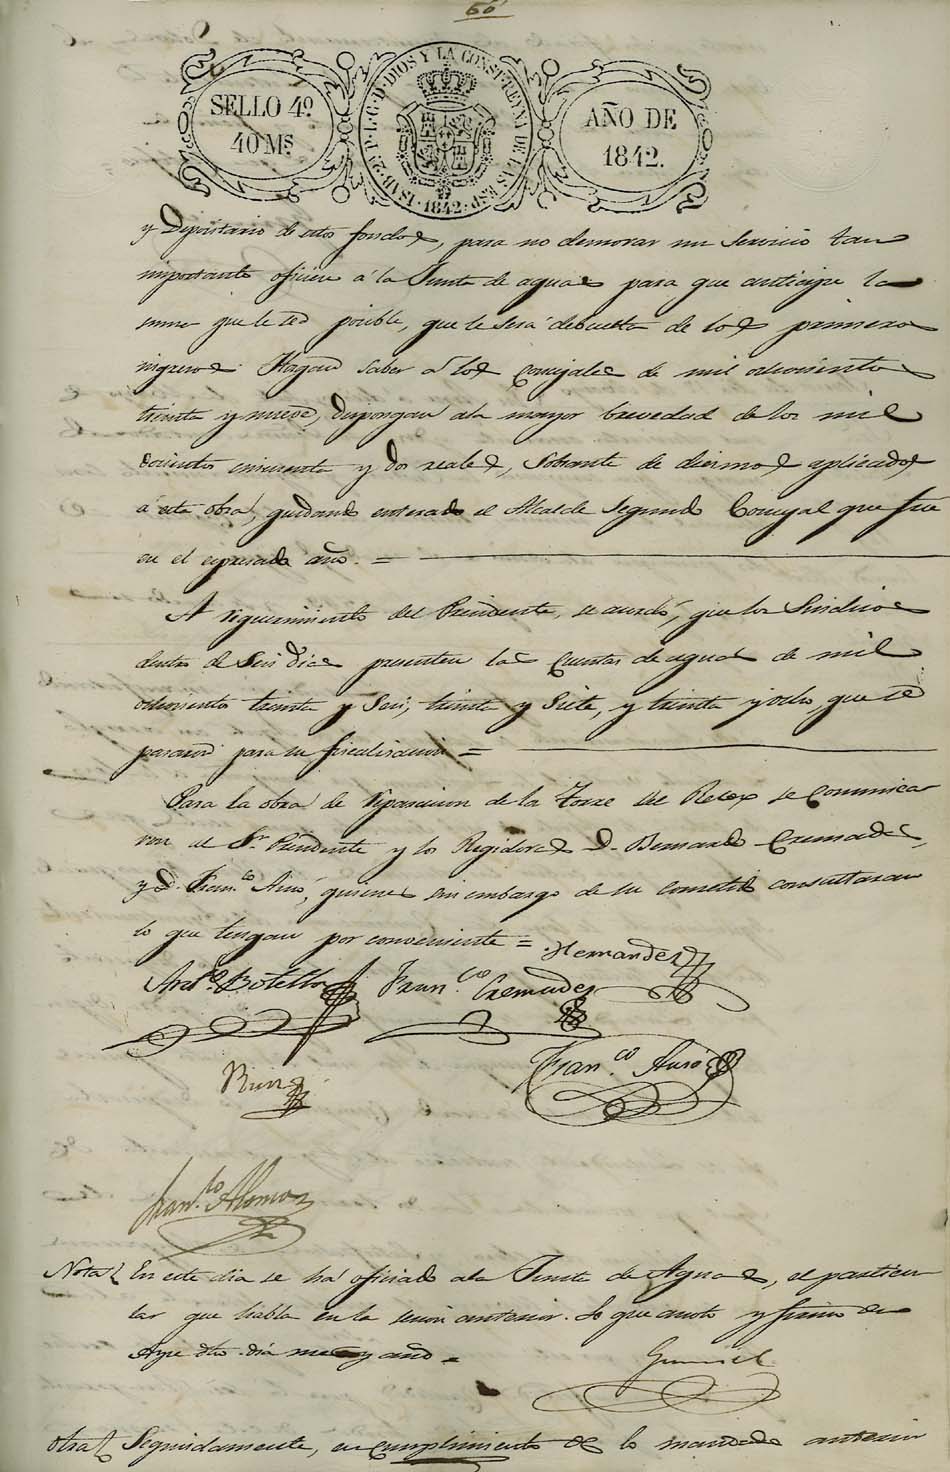 56
SELLO 4º
40 Ms
ISAB. 2ª P. L. G. D. DIOS Y LA CONST. REYNA DE LAS ESP.
1842
AÑO DE
1842.
y Depositario de estos fondos, para no demorar un Servicio tan
importante oficien á la Junta de aguas para que anticipe la
suma que le sea posible, que le será debuelta de los primeros
ingresos. Hagase saber á los Concejales de mil ochocientos
treinta y nueve, dispongan ala mayor brevedad de los mil
docientos cincuenta y dos reales, Sobrante de diezmos aplicados
á esta obra, quedando enterado el Alcalde Segundo Concejal que fue
en el espresado año. =
A requerimiento del Presidente, se acordó, que los Sindicos
dentro de Seis dias presenten las Cuentas de aguas de mil
ochocientos treinta y Seis, treinta y Siete, y treinta y ocho, que se
pasaran para su fiscalisacion =
Para la obra de reparacion de la Torre del Relox se comunica
ron al Sr. Presidente y los Regidores D. Bernardo Cremades,
y D. Fran.co Auró, quienes sin embargo de su cometido consultaran
lo que tengan por conveniente = Hernandez
Anto. Botella Fran.co Cremades
Ruiz Fran.co Auró
Fran.co Alonso
Nota En este dia se há oficiado ala Junta de Aguas, el particu
lar que habla en la sesion anterior. Lo que anoto y firmo en
Aspe dho. dia mes y año =
Otra Seguidamente, en cumplimiento de lo mandado anterior